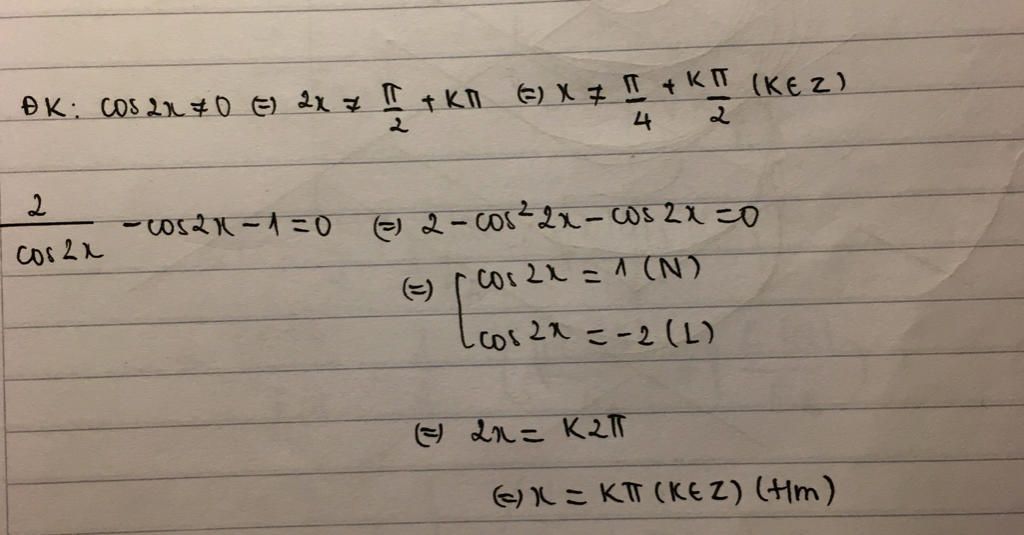 ĐK: cos2x ≠ 0 (=) 2x ≠ π/2 + Kπ (=) x ≠ π/4 + Kπ/2 (K∈Z)
2/cos2x - cos2x - 1 = 0 (=) 2 - cos² 2x - cos2x = 0
(=) [ cos2x = 1 (N)
cos2x = -2 (L)
(=) 2x = K2π
(=) x = Kπ (K∈Z) (tlm)